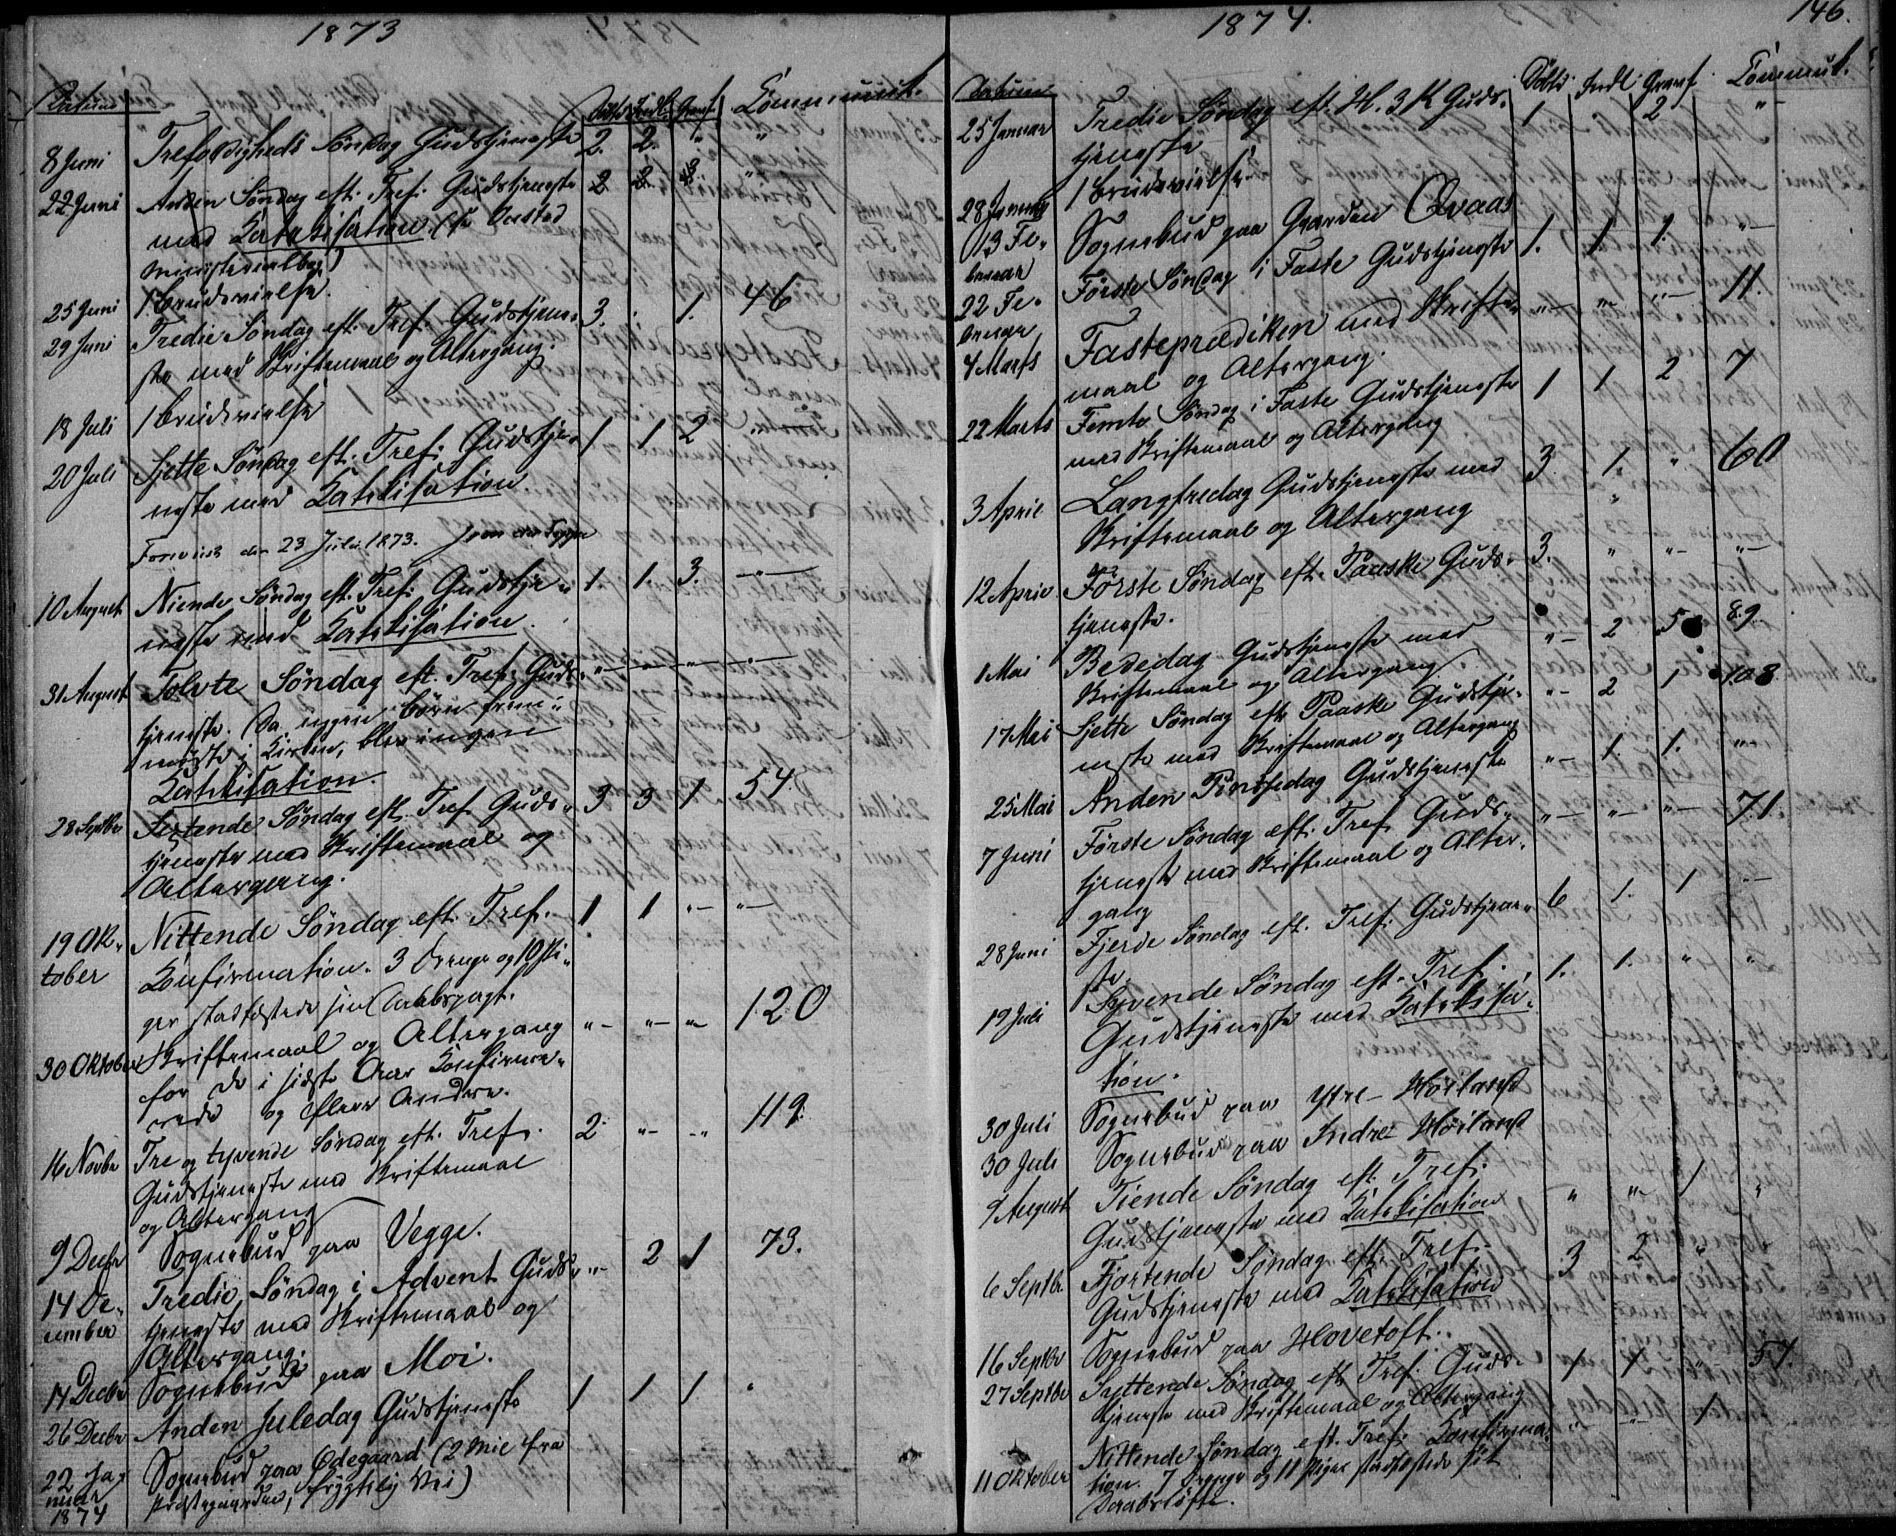 1873
Datum Döbte Indl. Graves. Communik.
8 Juni Trefoldigheds Söndag Gudstjeneste 2. 2. " "
22 Juni Anden Söndag eft. Tref. Gudstjeneste 2 2 3 "
med Katekisation.
Ministerialbog)
25 Juni 1 Brudevielse.
29 Juni Tredie Söndag eft. Tref. Gudstjene- 3. . 1. 46
ste med Skriftemaal og Altergang.
18 Juli 1 Brudevielse
20 Juli Sjette Söndag eft. Tref. Gudstje- 1 1 2 "
neste med Katekisation.
Forevist den 23 Juli 1873.
10 August Niende Söndag eft. Tref. Gudstje- 1. 1. 3. "
neste med Katekisation.
31 August Tolvte Söndag eft. Tref. Guds- " " " "
tjeneste. (Da ingen börn frem-
mödte i Kirken, blev ingen
Katekisation.
28 Septbr Sextende Söndag eft. Tref. Guds- 3 3 1 54
tjeneste med Skriftemaal og
Altergang.
19 Ok- Nittende Söndag eft. Tref. 1 1 " "
tober Konfirmation. 3 Drenge og 10 Pi-
ger stadfæstede sin Daabspagt.
30 Oktober Skriftemaal og Altergang " " " 120
for de i sidste Aar Konfirme-
rede og flere Andre.
16 Novbr Tre og tyvende Söndag eft. Tref. 2 " " 119.
Gudstjeneste med Skriftemaal
og Altergang
9 Decbr Sognebud paa Vegge.
14 De- Tredie Söndag i Advent Guds- " 2 1 73.
cember tjeneste med Skriftemaal og
Altergang.
17 Decbr Sognebud paa Moi.
26 Decbr Anden Juledag Gudstjeneste 1 1 1 "
22 Ja- Sognebud paa Ödegaard (2 Mil fra
nuar Præstegaarden, frygtelig Vei)
1874
1874. 146.
Datum Döbte Indl Graves. Commut.
25 Januar Tredie Söndag eft. H. 3 K Guds- 1 2 "
tjeneste
28 Januar 1 Brudevielse.
13 Fe- Sognebud paa Gaarden Qvaas
bruar
22 Fe- Förste Söndag i Faste Gudstjeneste 1. 1 1. "
bruar
4 Marts Fasteprædiken med Skrifte- " " " 11.
maal og Altergang.
22 Marts Femte Söndag i Faste Gudstjeneste 1 1 2 7
med Skriftemaal og Altergang
3 April Langfredag Gudstjeneste med 3 1. " 60
Skriftemaal og Altergang
12 April Förste Söndag eft. Paaske Guds- 3. " " "
tjeneste.
1 Mai Bededag Gudstjeneste med " 2 5 89
Skriftemaal og Altergang.
17 Mai Sjette Söndag eft Paaske Gudstje- " 2 1 108
neste med Skriftemaal og Altergang
25 Mai Anden Pintsedag Gudstjeneste " 1. 1. "
7 Juni Förste Söndag eft. Tref. Guds- " " " 71.
tjeneste med Skriftemaal og Alter-
gang
28 Juni Fjerde Söndag eft. Tref. Gudstjene- 6 1. 1 "
ste.
19 Juli Syvende Söndag eft. Tref. 1. 1. " "
Gudstjeneste med Katekisa-
tion.
30 Juli Sognebud paa Ytre-Höiland
30 Juli Sognebud paa Indre Höiland
9 August Tiende Söndag eft. Tref. " " 1 "
Gudstjeneste med Katekisation
6 Septbr. Fjortende Söndag eft. Tref. 3 2 " "
Gudstjeneste med Katekisation
16 Septbr Sognebud paa Hovetoft.
27 Septbr Syttende Söndag eft Tref. Guds- 1 1 " 57.
tjeneste med Skriftemaal og Altergang
11 Oktober Nittende Söndag eft. Tref. Konfirma- " " 1
tion. 7 Drenge og 11 Piger stadfæstede sit
Daabslöfte.